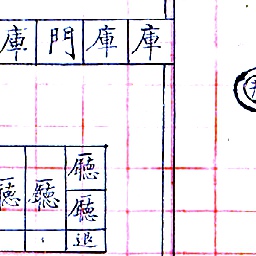 庫門庫庫
廳
廳廳廳
退